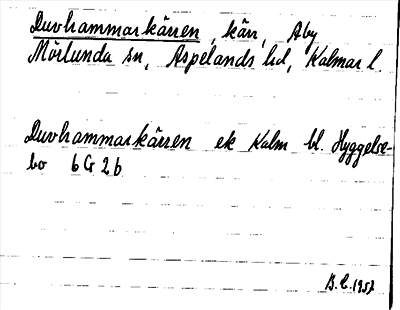 Duvhammarkärren, kärr, Åby
Mörlunda sn, Aspelands hd, Kalmar l.
Duvhammarkärren ek Kalm bl. Hyggelse-
bo 6 G 2 b
B.L. 1957